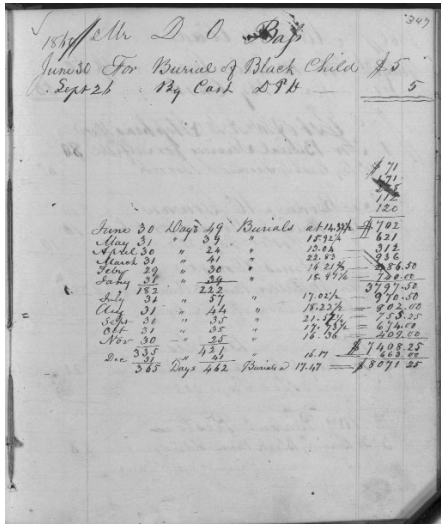 349
Mr D. O. Bass
June 30 For Burial of Black Child $5
Sept 26 By Cash DPH 5
$71
71
112
120
June 30 Days 49 Burials at 14.32½ = $702
May 31 " 39 " 15.92½ 621
April 30 " 24 " 13.04 312
March 31 " 41 " 22.83 936
Feby 29 " 30 " 14.21⅔ 486.50
Jany 31 " 39 " 18.97½ 740.00
182 222 3797.50
July 31 " 57 " 17.02½ 970.50
Aug 31 " 44 " 18.22½ 802.00
Sept 30 " 35 " 21.52½ 753.25
Oct 31 " 35 " 674.00
Nov 30 " 25 " 16.36 409.00
335 421 $7408.25
Dec 31 41 " 16.17 663.00
365 Days 462 Burials 17.47 = $8071.25